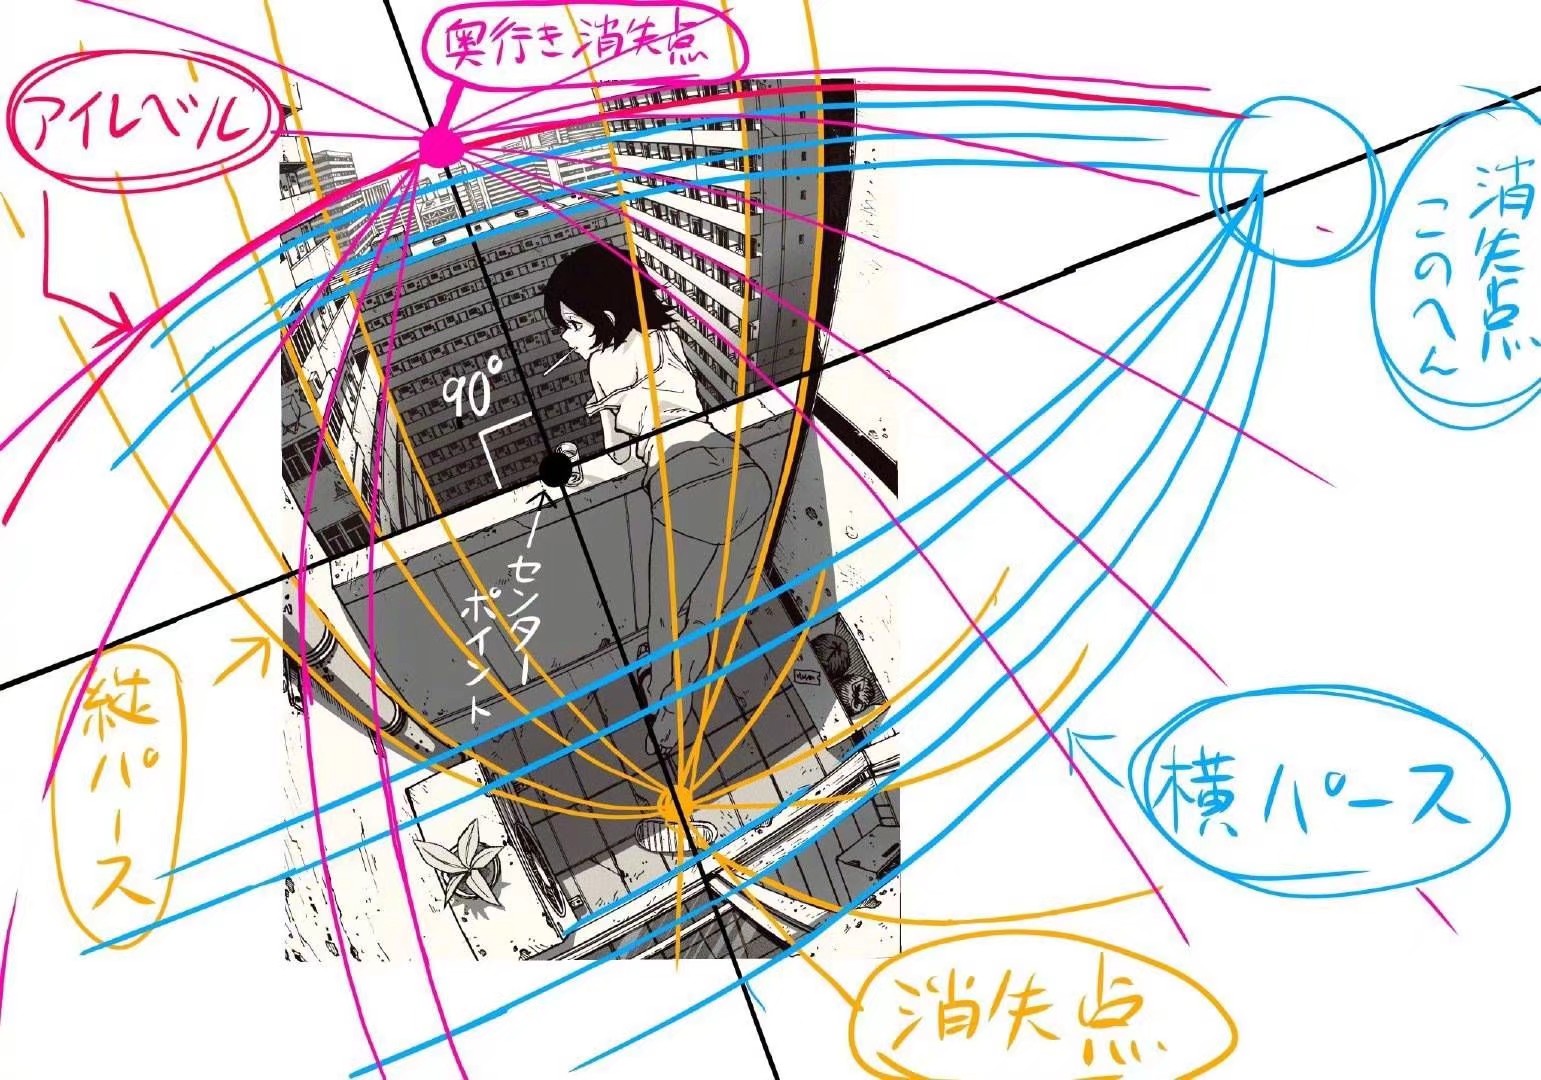 奥行き消失点
アイレベル
消失点
このへん
90°
センター
ポイント
縦パース
横パース
消失点